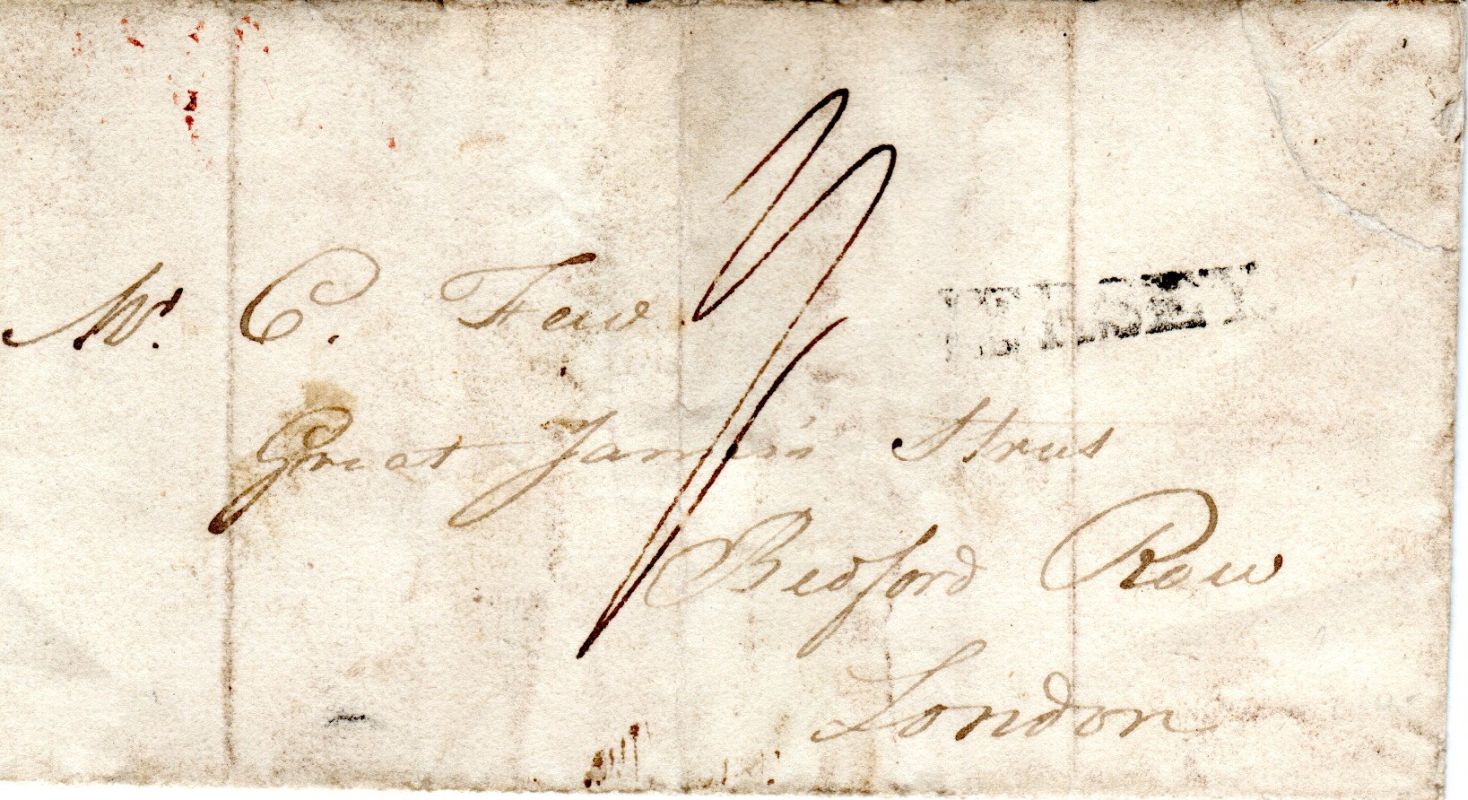 JERSEY
Mr. C. Few
Great James's Street
Bedford Row
London